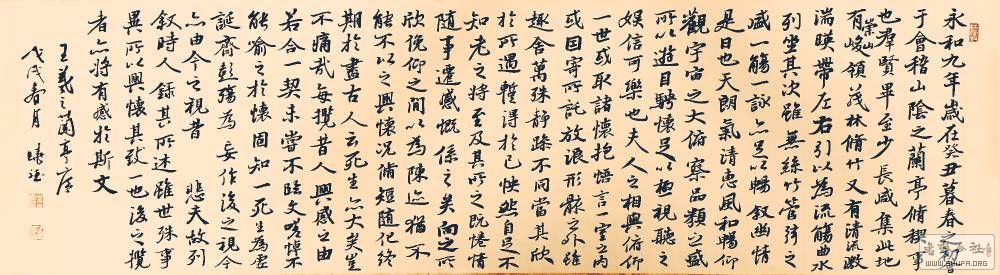 永和九年歲在癸丑暮春之初會
于會稽山陰之蘭亭脩稧事
也群賢畢至少長咸集此地
有崇山峻領茂林脩竹又有清流激
湍暎帶左右引以為流觴曲水
列坐其次雖無絲竹管弦之
盛一觴一詠亦足以暢敘幽情
是日也天朗氣清惠風和暢仰
觀宇宙之大俯察品類之盛
所以遊目騁懷足以極視聽之
娛信可樂也夫人之相與俯仰
一世或取諸懷抱悟言一室之內
或因寄所託放浪形骸之外雖
趣舍萬殊靜躁不同當其欣
於所遇暫得於己怏然自足不
知老之將至及其所之既惓情
隨事遷感慨係之矣向之所
欣俛仰之間以為陳迹猶不
能不以之興懷況脩短隨化終
期於盡古人云死生亦大矣豈
不痛哉每攬昔人興感之由
若合一契未嘗不臨文嗟悼不
能喻之於懷固知一死生為虛
誕齊彭殤為妄作後之視今
亦由今之視昔 悲夫故列
敘時人錄其所述雖世殊事
異所以興懷其致一也後之攬
者亦將有感於斯文
王羲之蘭亭序
戊戌春月